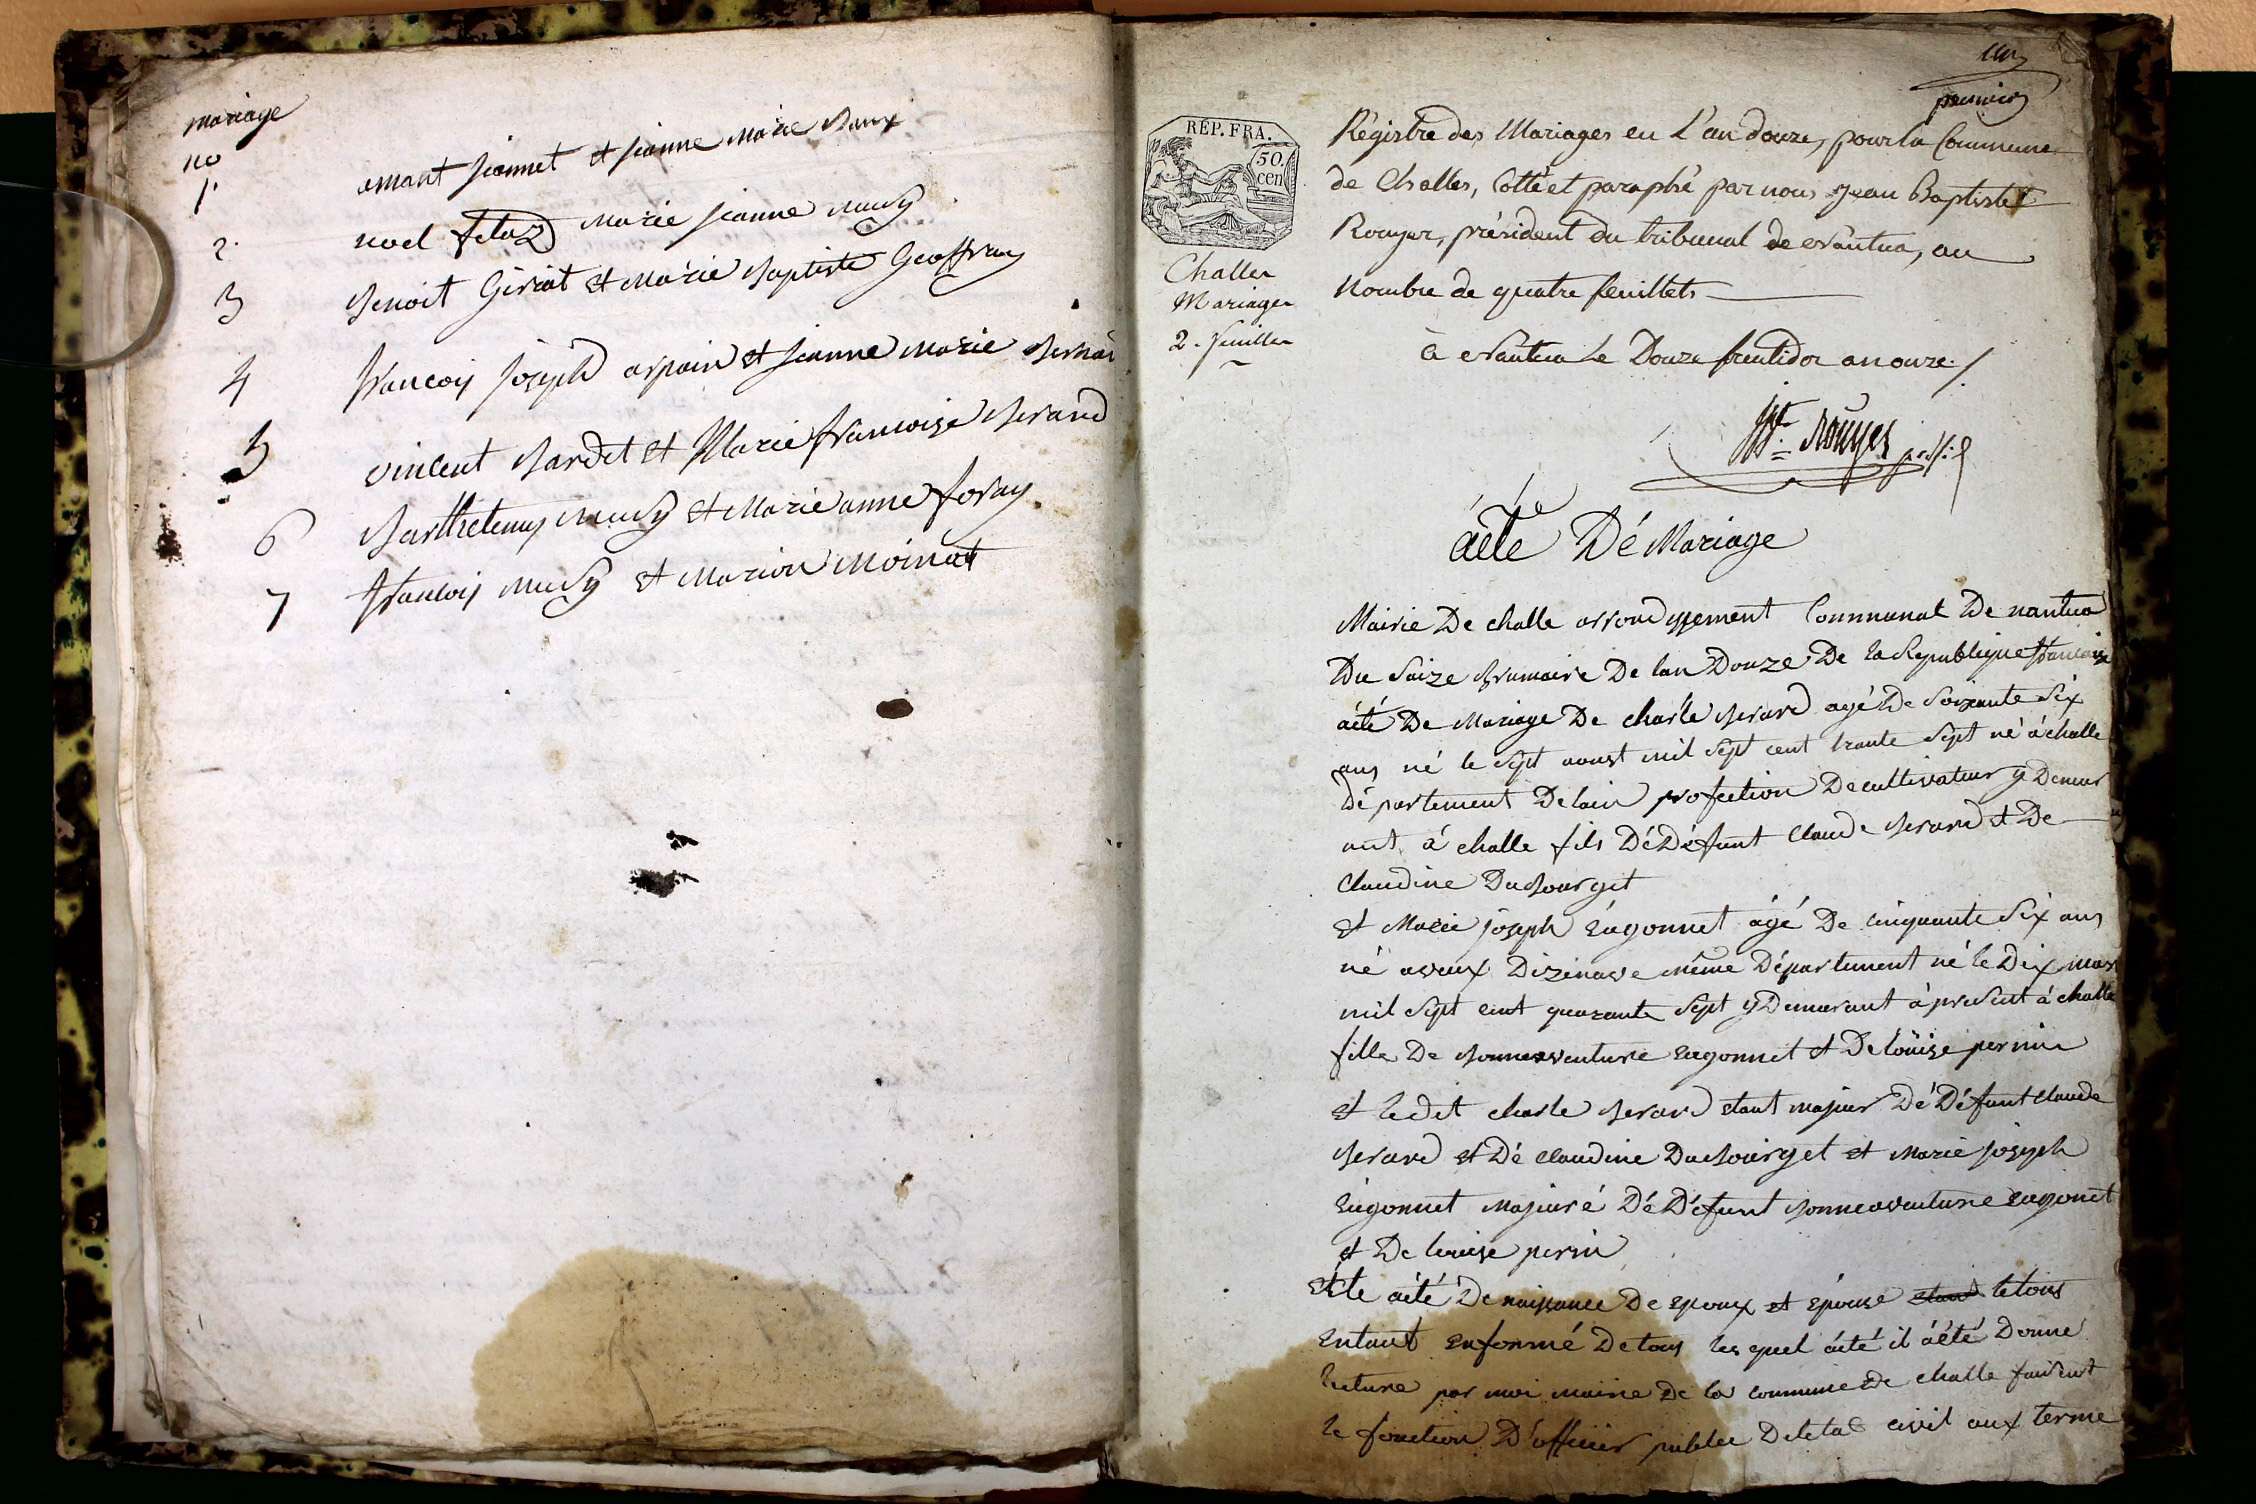 mariage
no
1. amant jeannet et jeanne Marie
2. noel Marie jeanne
3 Benoit Giriat et Marie Baptiste Geoffray
4 francoij joseph arpain et jeanne marie
5 vincent Bardet et Marie francoise Berard
6 Barthelemy et Marie anne foray
7 francoij et Marion Moinat
un
premier
REP. FRA.
50.
cen
Challe
Mariage
2. feuille
Régistre des Mariages en L'an douze, pour la Commune
de Challes, Cotté et paraphé par nous Jean Baptiste
Rouyer, président du tribunal de Nantua, au
Nombre de quatre feuillets
à Nantua Le Douze fructidor an onze.
Rouyer
áété Dé Mariage
Mairie De challe arrondyssement Communal De nantua
Du Saize Brumaire De lan Douze De la Republique francaise
áété De Mariage De charle Berard agé De Soixante Six
ans né le Sept aoust mil Sept cent trante Sept né á challe
département Delain profection De cultivateur y Demeur
ant á challe fils Dé Défunt Claude Berard et De
Claudine Dubourget
et Marie joseph águé De cinquante Six ans
né Dizenave même Département né le Dix mars
mil Sept cent quarante Sept y Demurant á present á challe
fille De Bonneaventure et De loüise pernin
et ledit charle Berard etant majeur Dé Défunt claude
Berard et Dé claudine Dubourget et Marie joseph
majeure Dé Défunt Bonneaventure
et De louise perin
et le áété De naissance De epoux et épouse le tous
entant enformé De tous les quel áété il áété Donne
lecture par moi maire De la commune De challe faisent
le fonction D'officier publec De letat civil aux terme